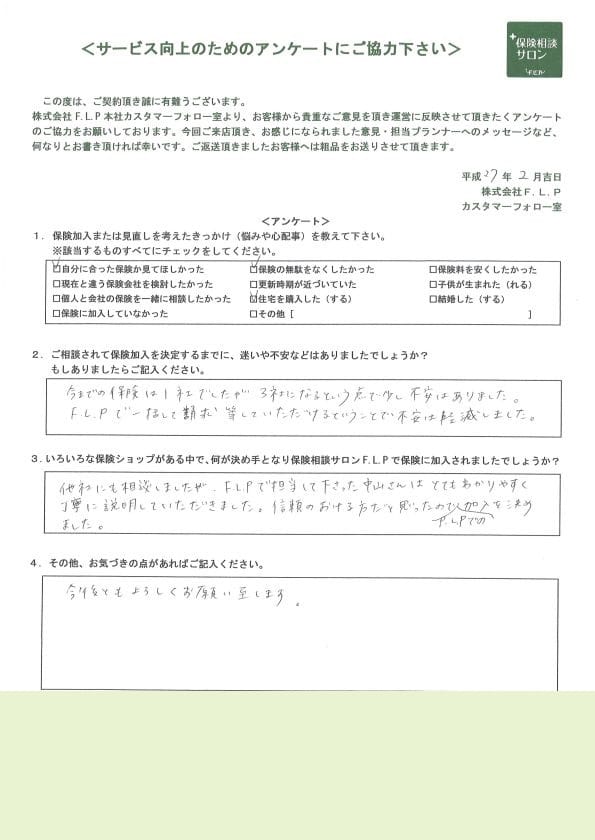 ＜サービス向上のためのアンケートにご協力下さい＞
+保険相談
サロン
F.L.P
この度は、ご契約頂き誠に有難うございます。
株式会社F.L.P本社カスタマーフォロー室より、お客様から貴重なご意見を頂き運営に反映させて頂きたくアンケート
のご協力をお願いしております。今回ご来店頂き、お感じになられました意見・担当プランナーへのメッセージなど、
何なりとお書き頂ければ幸いです。ご返送頂きましたお客様へは粗品をお送りさせて頂きます。
平成27年2月吉日
株式会社F.L.P
カスタマーフォロー室
＜アンケート＞
1．保険加入または見直しを考えたきっかけ（悩みや心配事）を教えて下さい。
※該当するものすべてにチェックをしてください。
☑自分に合った保険か見てほしかった ☑保険の無駄をなくしたかった □保険料を安くしたかった
□現在と違う保険会社を検討したかった □更新時期が近づいていた □子供が生まれた（れる）
□個人と会社の保険を一緒に相談したかった ☑住宅を購入した（する） □結婚した（する）
□保険に加入していなかった □その他［ ］
2．ご相談されて保険加入を決定するまでに、迷いや不安などはありましたでしょうか？
もしありましたらご記入ください。
今までの保険は1社でしたが 3社になるという点で少し不安はありました。
F.L.Pで一括して 等していただけるということで不安は軽減しました。
3．いろいろな保険ショップがある中で、何が決め手となり保険相談サロンF.L.Pで保険に加入されましたでしょうか？
他社にも相談しましたが、F.L.Pで担当して下さった中山さんは とてもわかりやすく
丁寧に説明していただきました。信頼のおける方だと思ったのでF.L.Pでの加入を決め
ました。
4．その他、お気づきの点があればご記入ください。
今後ともよろしくお願い致します。